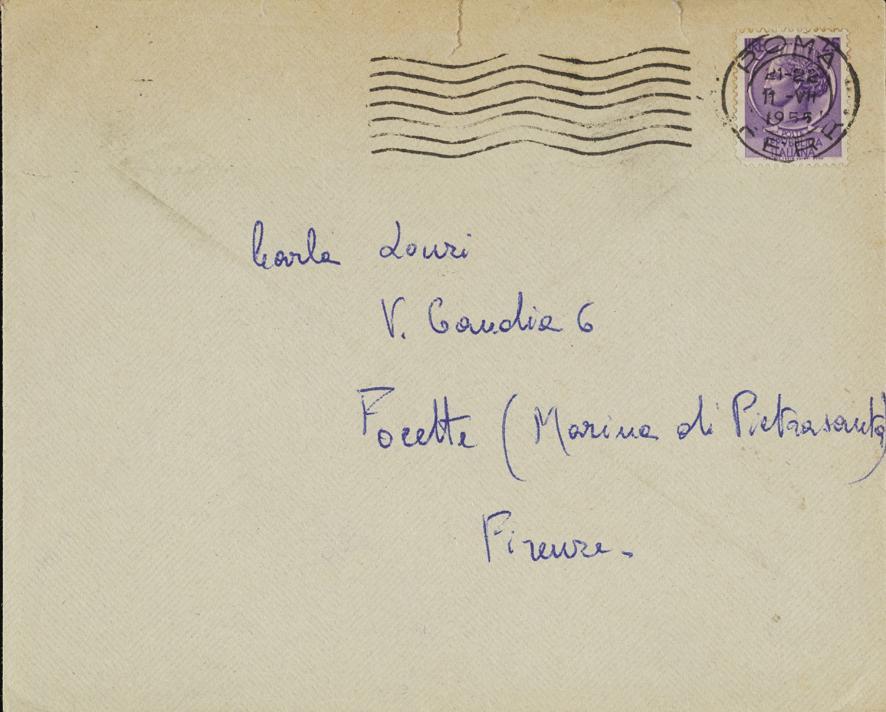 ROMA FERR.
21-22
11-VII
1955
POSTE
REPUBBLICA
ITALIANA
Carla Lonzi
V. Gaudia 6
Focette (Marina di Pietrasanta)
Firenze -